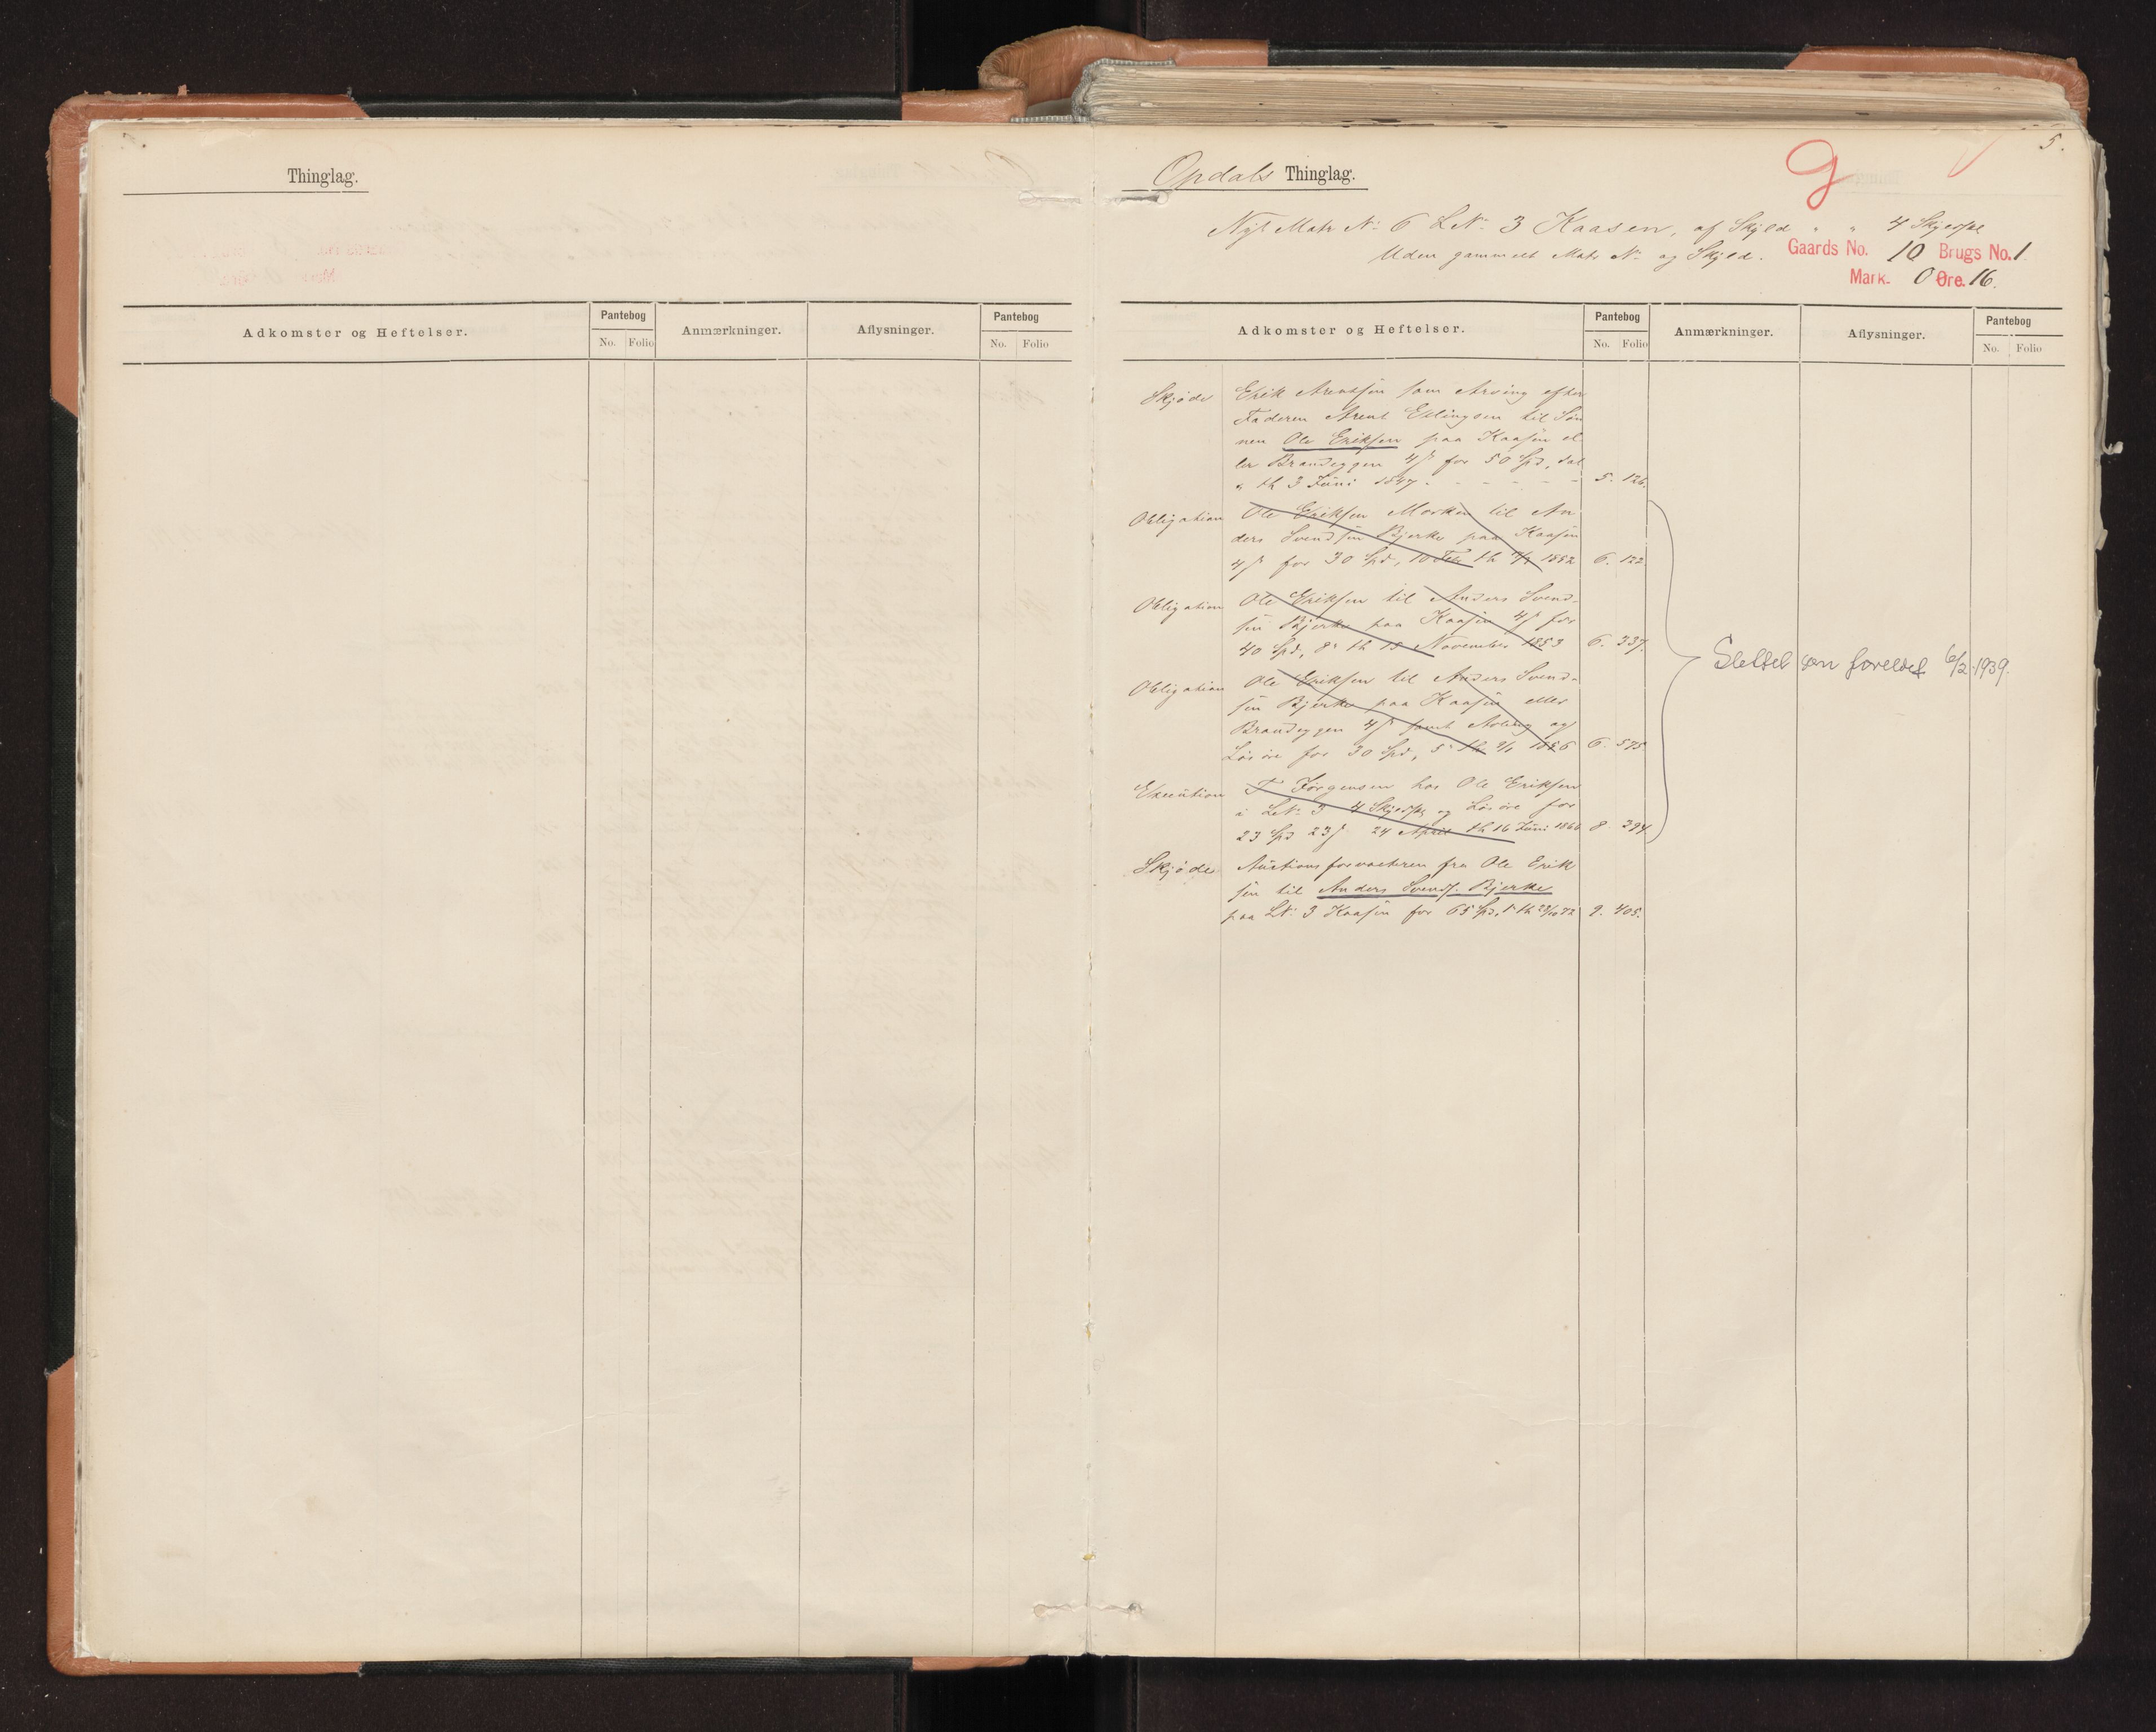 Thinglag.
Adkomster og Heftelser.
Pantebog
No. Folio
Anmærkninger.
Aflysninger.
Pantebog
No. Folio
5.
g
Opdals Thinglag.
Nyt Matr Nº 6 LNº 3 Kaasen, af Skyld " " 4 Skjespe
Uden gammelt Matr Nº og Skyld.
Gaards No. 10 Brugs No. 1
Mark. 0 Øre. 16.
Adkomster og Heftelser.
Pantebog
No. Folio
Anmærkninger.
Aflysninger.
Pantebog
No. Folio
Skjøde Erik Arentsen som Arving efter
Faderen Arent Erlingsen til Søn
nen Ole Eriksen paa Kaasen el
ler Brandeggen 4 ß for 50 Spd, dat
th 3 Juni 1847 - - - - - 5. 126.
Obligation Ole Eriksen Morken til An
ders Svendsen Bjerke paa Kaasen
4 ß for 30 Spd, 10 Febr th 1852 6. 122.
Obligation Ole Eriksen til Anders Svend-
sen Bjerke paa Kaasen 4 ß for
40 Spd, 8 th 15 November 1853 6. 337.
Obligation Ole Eriksen til Anders Svend-
sen Bjerke paa Kaasen eller
Brandeggen 4 ß samt Avling og
Løsøre for 30 Spd, 5 th 1856 6. 575
Execution T Jørgensen hos Ole Eriksen
i LNº 3 4 Skjespe og Løsøre for
23 Spd 23 ß 24 April th 16 Juni 1866 8. 394
Slettet som foreldet 6/2 1939.
Skjøde Auctionsforvalteren fra Ole Erik
sen til Anders Svends. Bjerke
paa LNº 3 Kaasen for 65 Spd, th 72 9. 405.